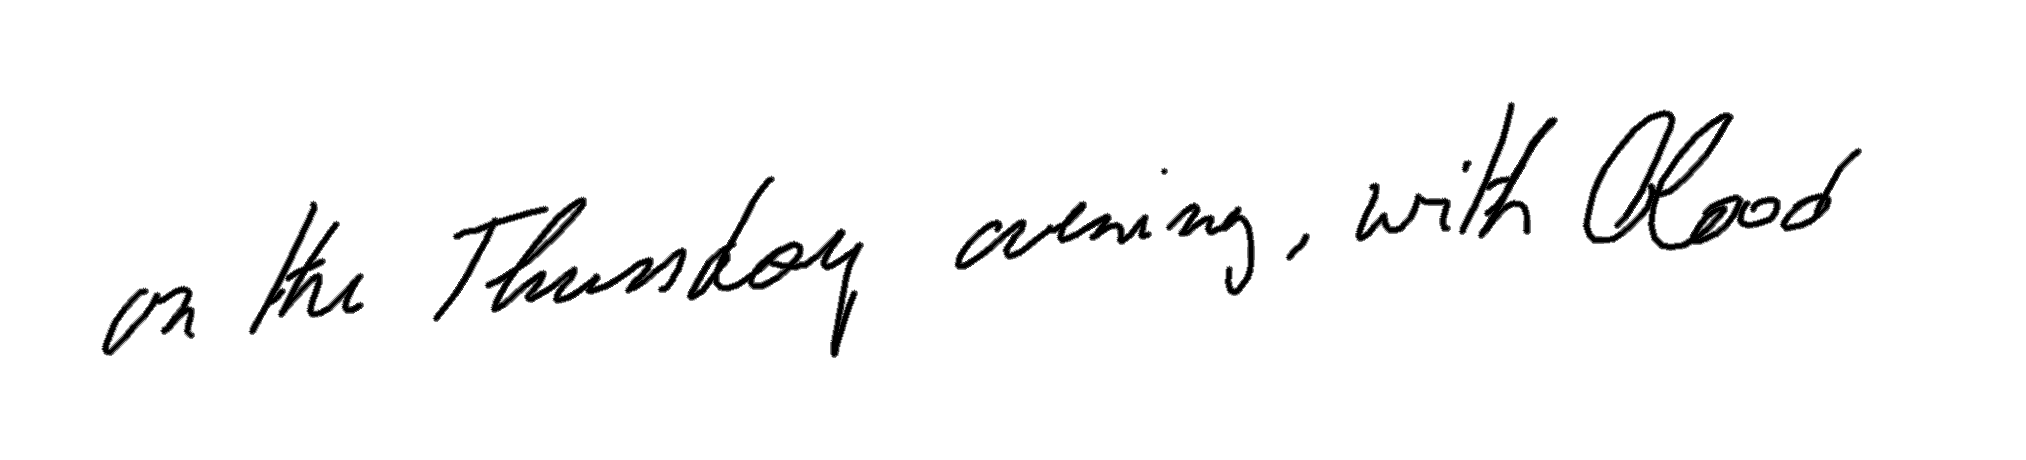 on the Thursday evening, with Blood